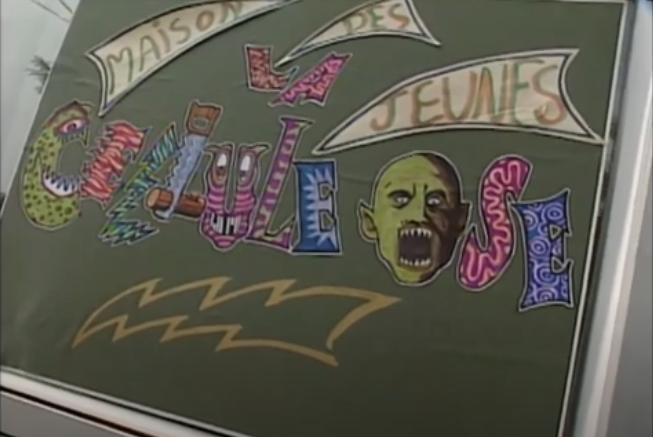 MAISON DES
JEUNES
LA
CELLULE OSE